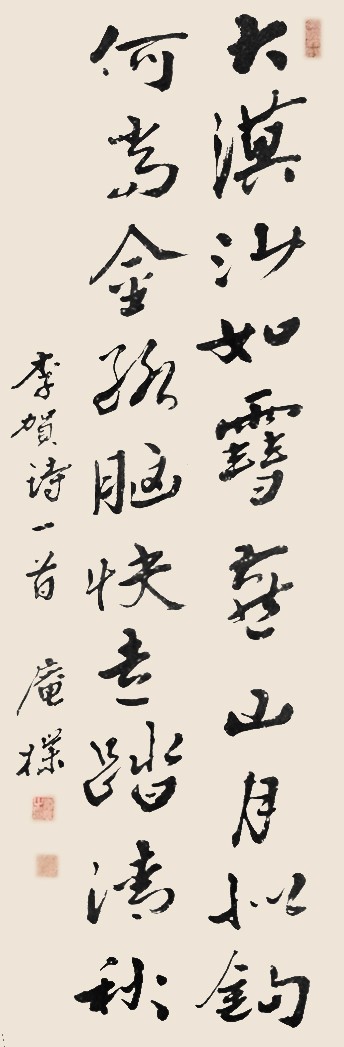 大漠沙如雪燕山月似鈎
何當金絡腦快走踏清秋
李賀詩一首 庵樸